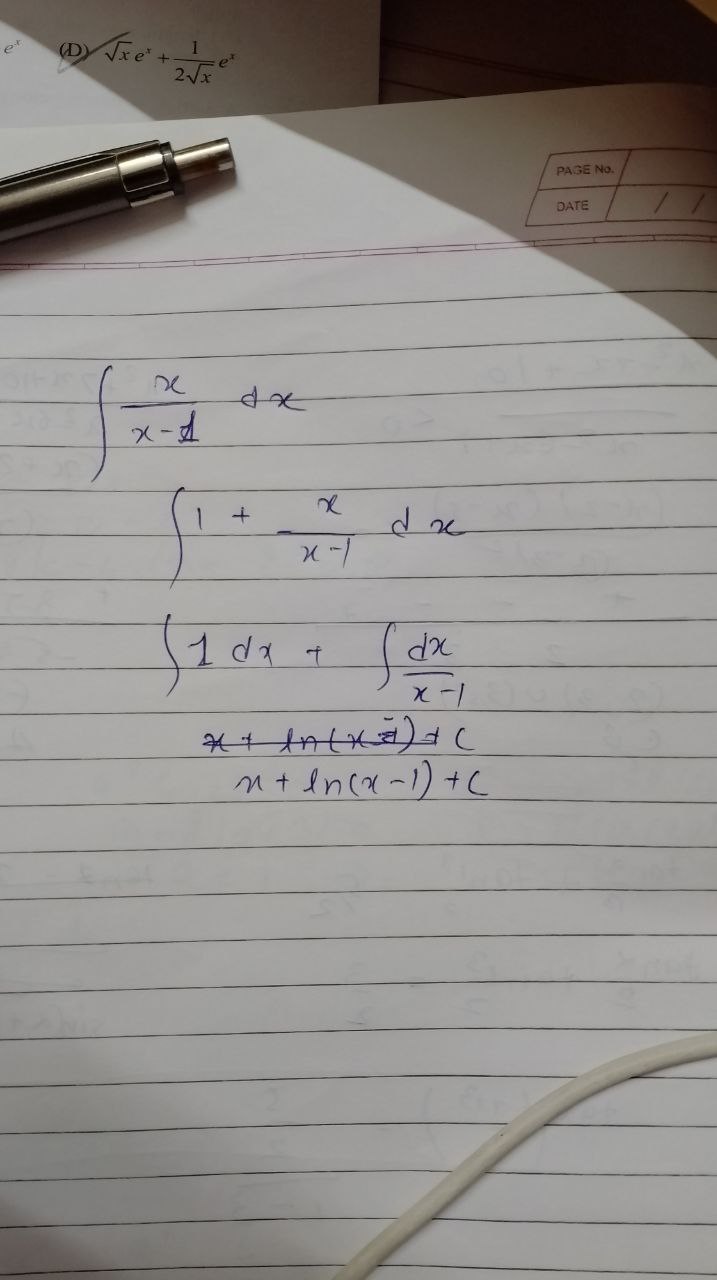 eˣ (D) √x eˣ + 1/(2√x) eˣ
PAGE No.
DATE / /
∫ x/(x-1) dx
∫ 1 + x/(x-1) dx
∫ 1 dx + ∫ dx/(x-1)
x + ln(x-1) + C